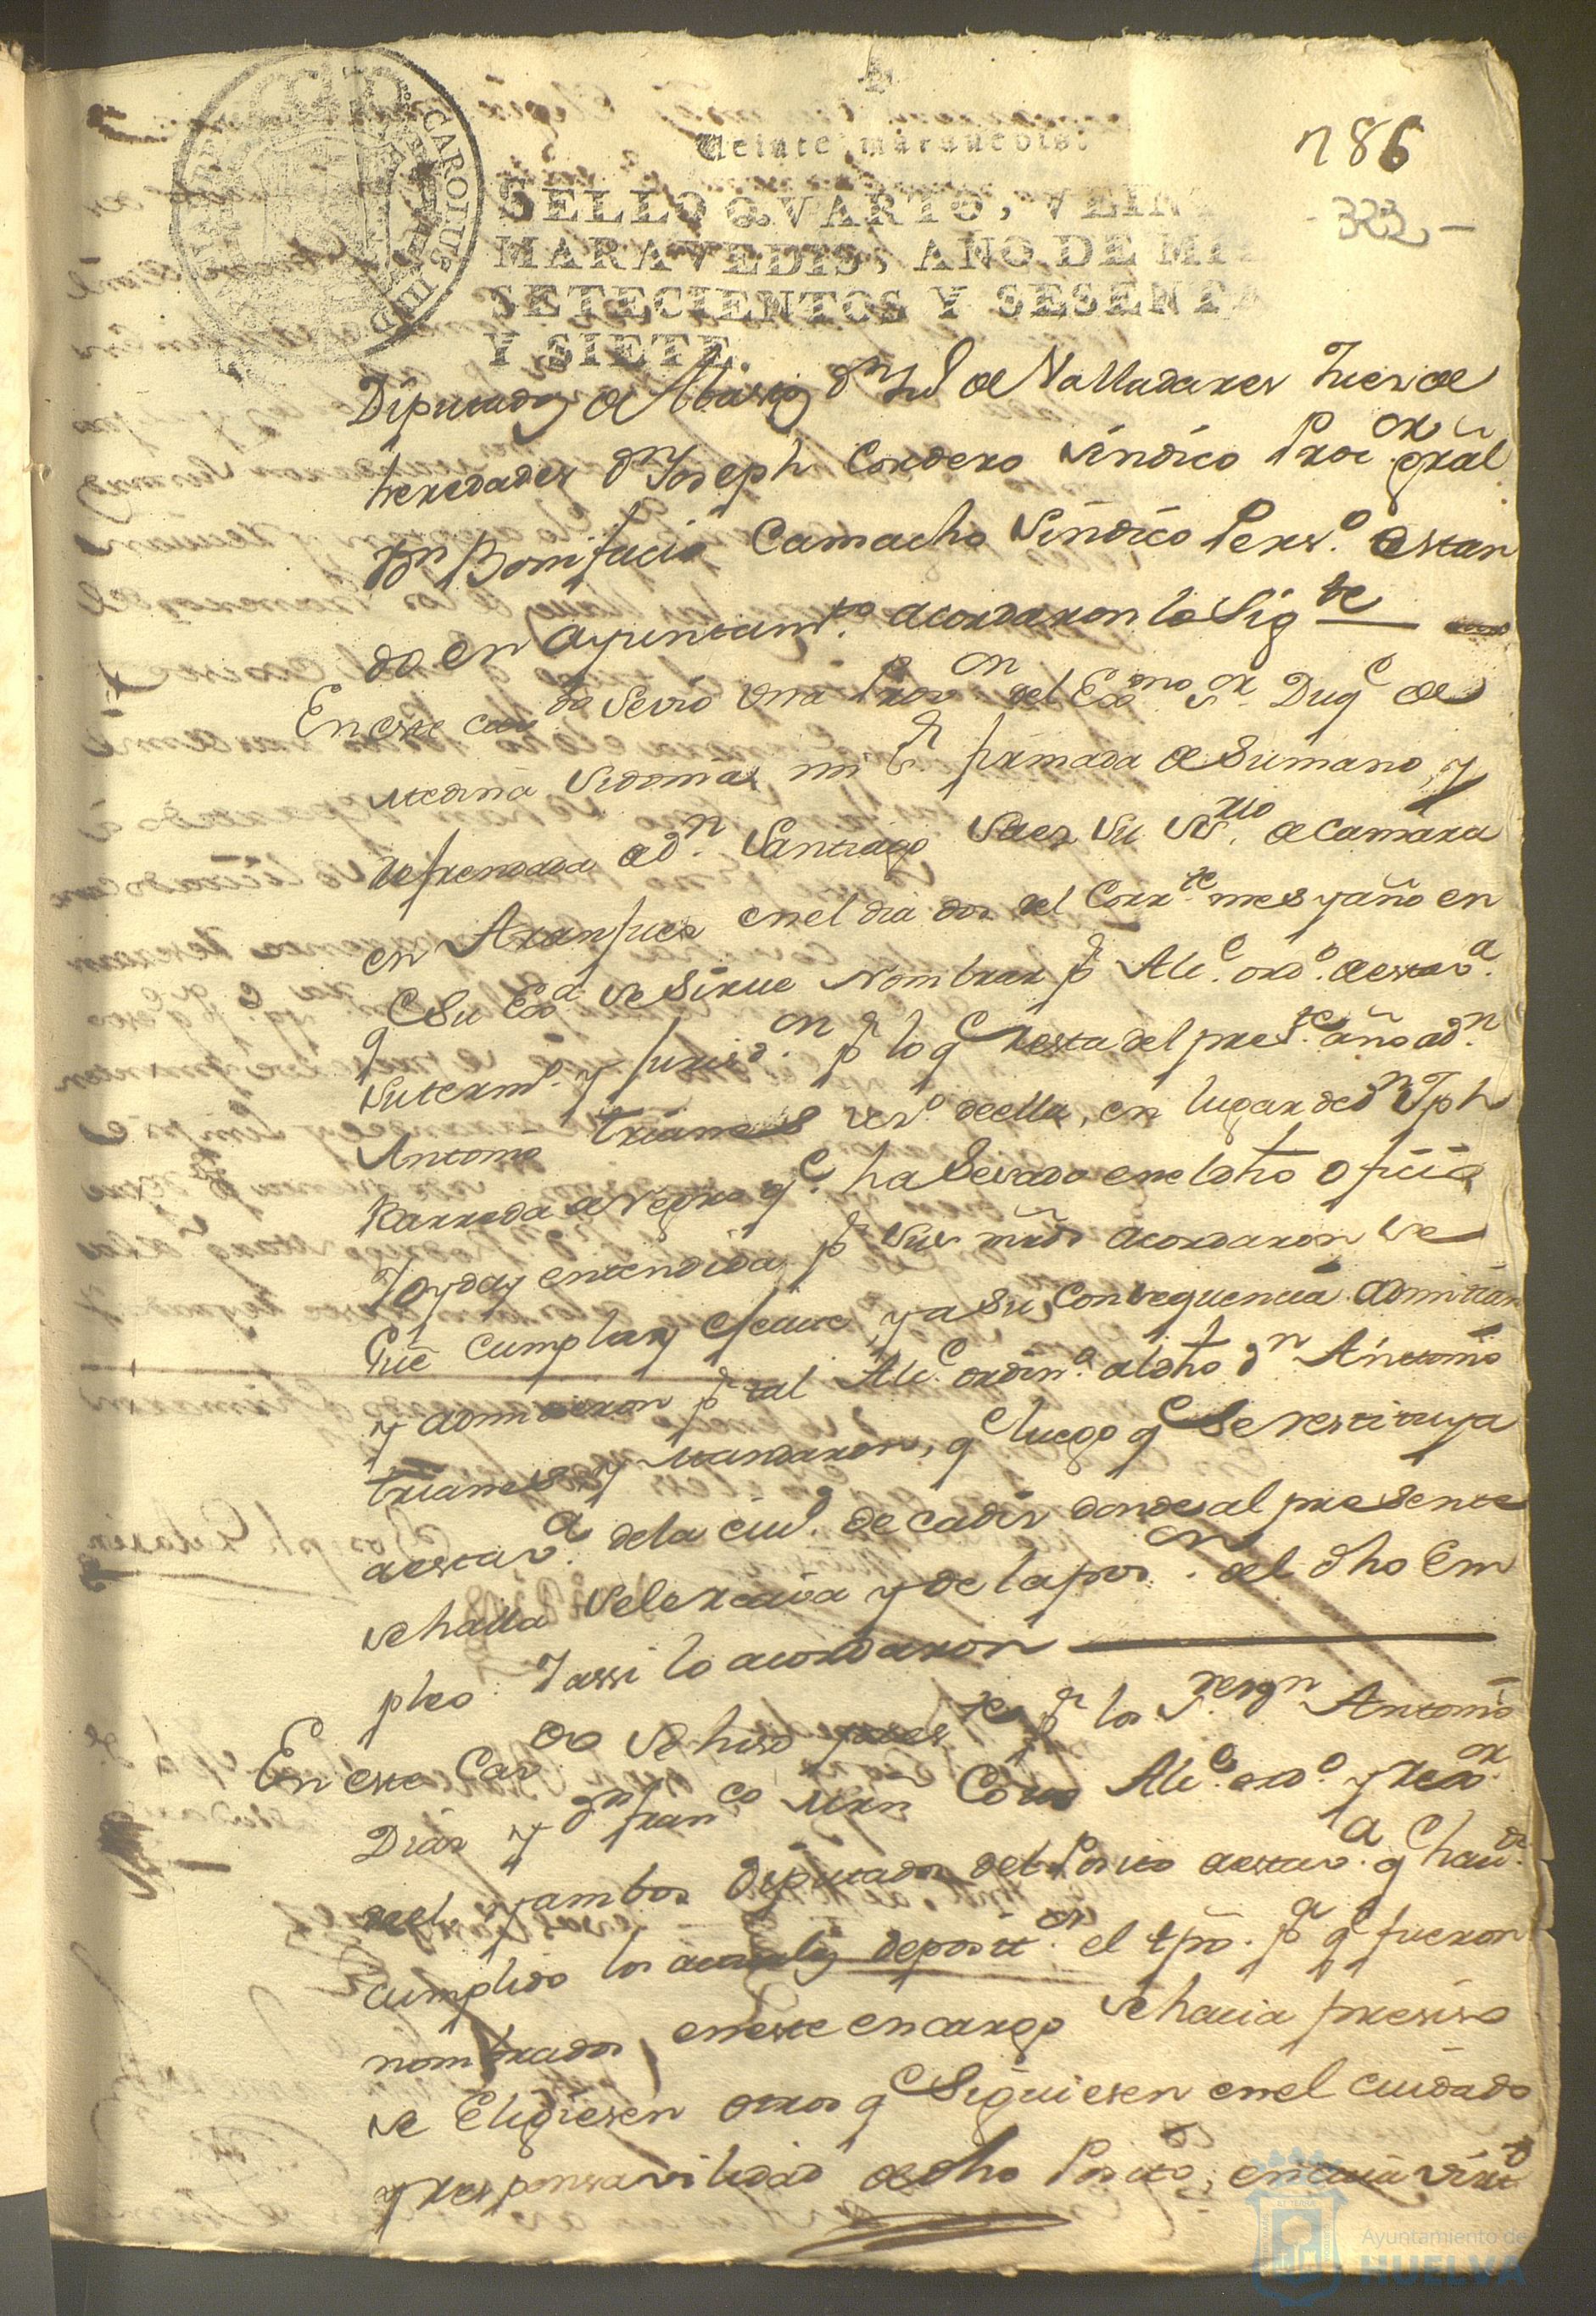 Veinte marauedis.
186
SELLO QVARTO, VEINT
MARAVEDIS, AÑO DE MIL
SETECIENTOS Y SESENTA
Y SIETE.
322
CAROLUS III D
Diputados de Abastos Dn de Valladares Jues de
heredades Dn Joseph Cordero Sindico Procor gral
Dn Bonifacio Camacho Sindico Perso. estan
do en ayuntamto. acordaron lo Sigte
En este cavdo se vio una Provon del Exmo Sor Duqe de
Medina Sidonia mi Sr. firmada de su mano, y
refrendada de Dn. Santiago Saes su Srio. de Camara
en Aranjues en el dia dos del Corrte mes y año en
qe Su Exa se sirue Nombrar pr Alce. ordo. de esta va.
su termo. y jurisdon. pr lo qe resta del preste. año a Dn
Antonio trianes veso. de ella, en lugar de Dn Jph
Barreda Negro qe. ha Servado en el dho oficio
Y oyda y entendida pr sus mrds acordaron se
Gue cumpla y Execute, y a su Consequencia admitian
y admitieron pr tal Alce. ordino. al dho Dn Antonio
trianes y mandaron, qe luego qe Se restituya
a esta va. de la ciud. de cadis donde al presente
se halla Se le reciva y de la poson. del dho Em
pleo. Y assi lo acordaron
En este Cavdo Se hiso preste pr los Sres Dn Antonio
Dias y Dn Franco Mrn Cortes Alce. ordo. y rexor.
de el, y ambos Diputados del Posito de esta va. qe havr.
cumplido los actuales depositos. el tpo. pa qe fueron
nombrados, en este encargo Se hacia presiso
se Eligiesen otros qe Siguiesen en el cuidado
y responsavilidad de dho Posito; en cuia virtd
Ayuntamiento de
HUELVA